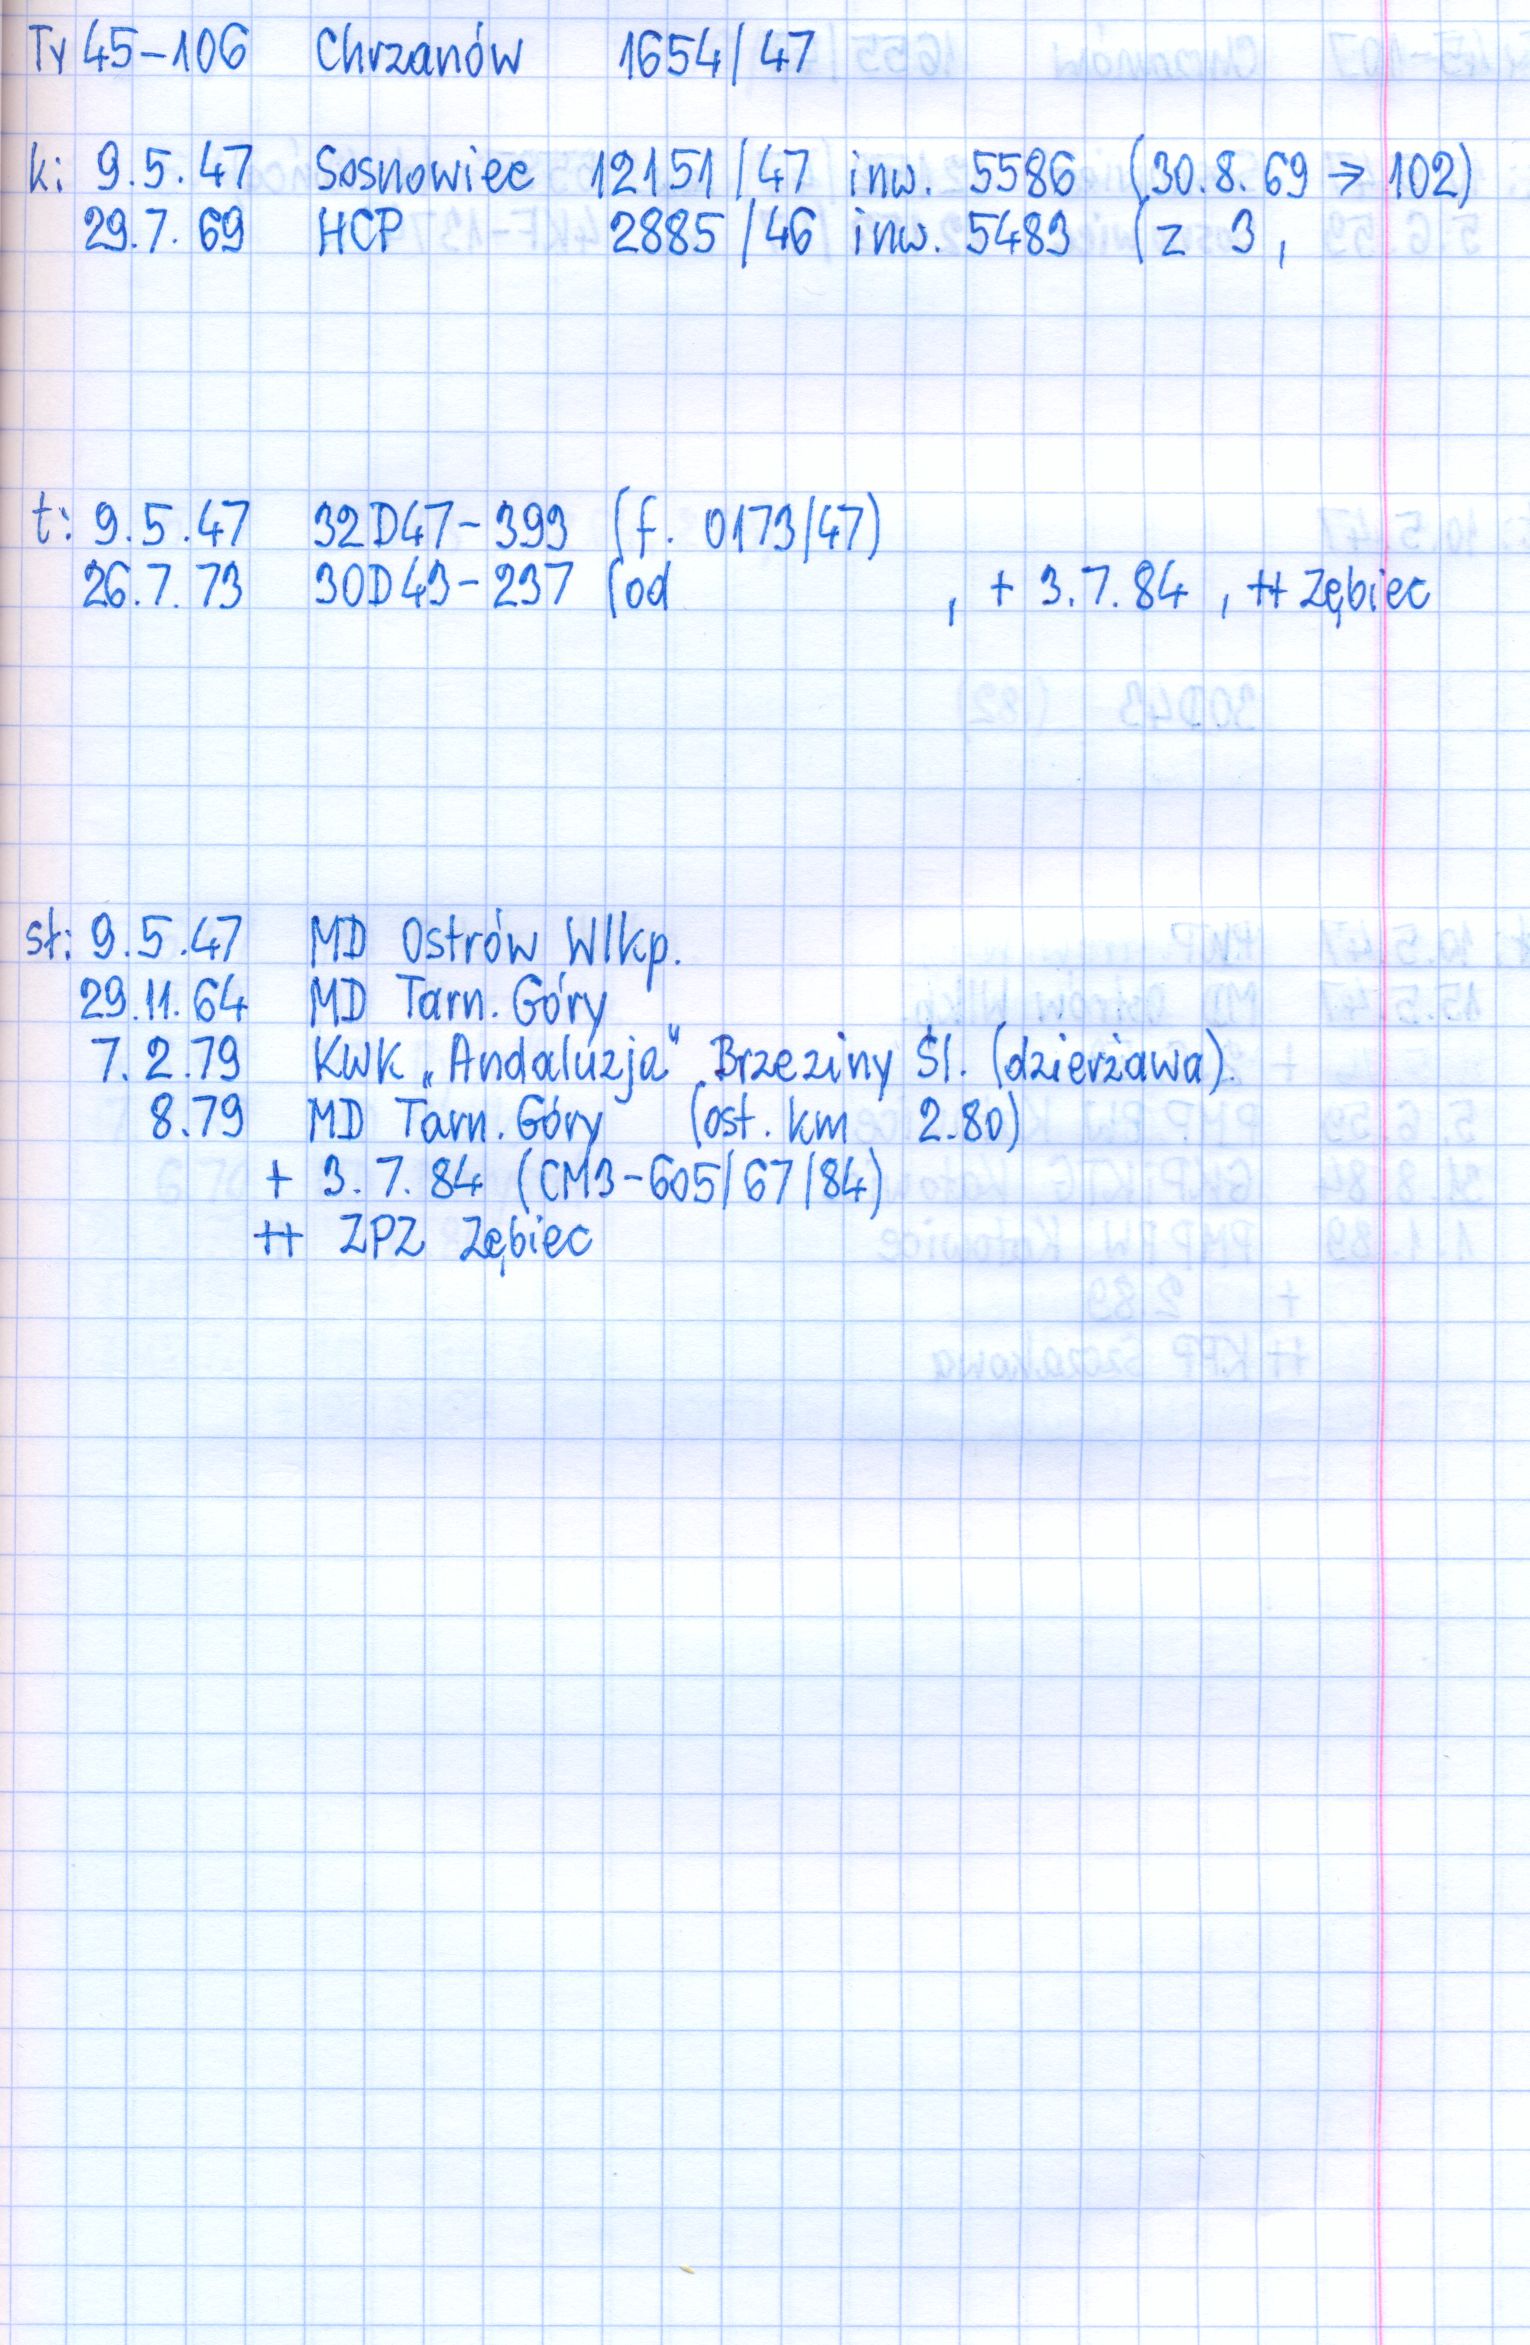 Ty 45-106 Chrzanów 1654/47
k: 9.5.47 Sosnowiec 12151/47 inw. 5586 (30.8.69 → 102)
29.7.69 HCP 2885/46 inw. 5483 (z 3,
t: 9.5.47 32D47-393 (f. 0173/47)
26.7.73 30D43-237 (od , + 3.7.84, ++ Zębiec
st: 9.5.47 MD Ostrów Wlkp.
29.11.64 MD Tarn. Góry
7.2.79 KWK „Andaluzja" Brzeziny Śl. (dzierżawa).
8.79 MD Tarn. Góry (ost. km 2.80)
+ 3.7.84 (CM3-605/67/84)
++ ZPZ Zębiec